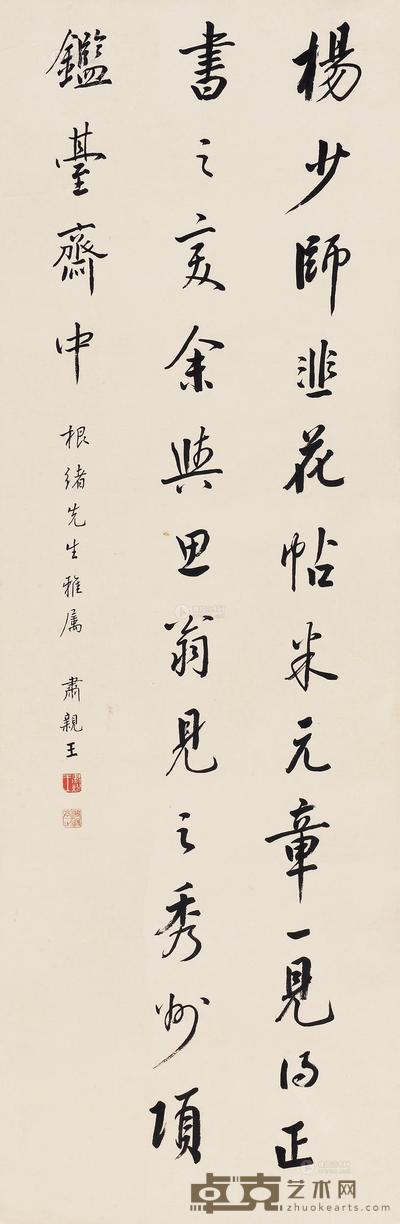 楊少師韭花帖米元章一見得正
書之余與思翁見之秀州項
鑑臺齋中
根緒先生雅属 肅親王
卓克艺术网
zhuokearts.com